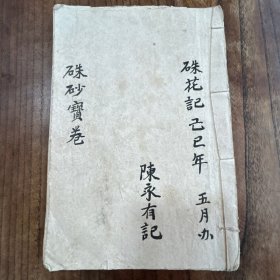 硃花記己巳年 五月办
陳永有記
硃砂寶卷